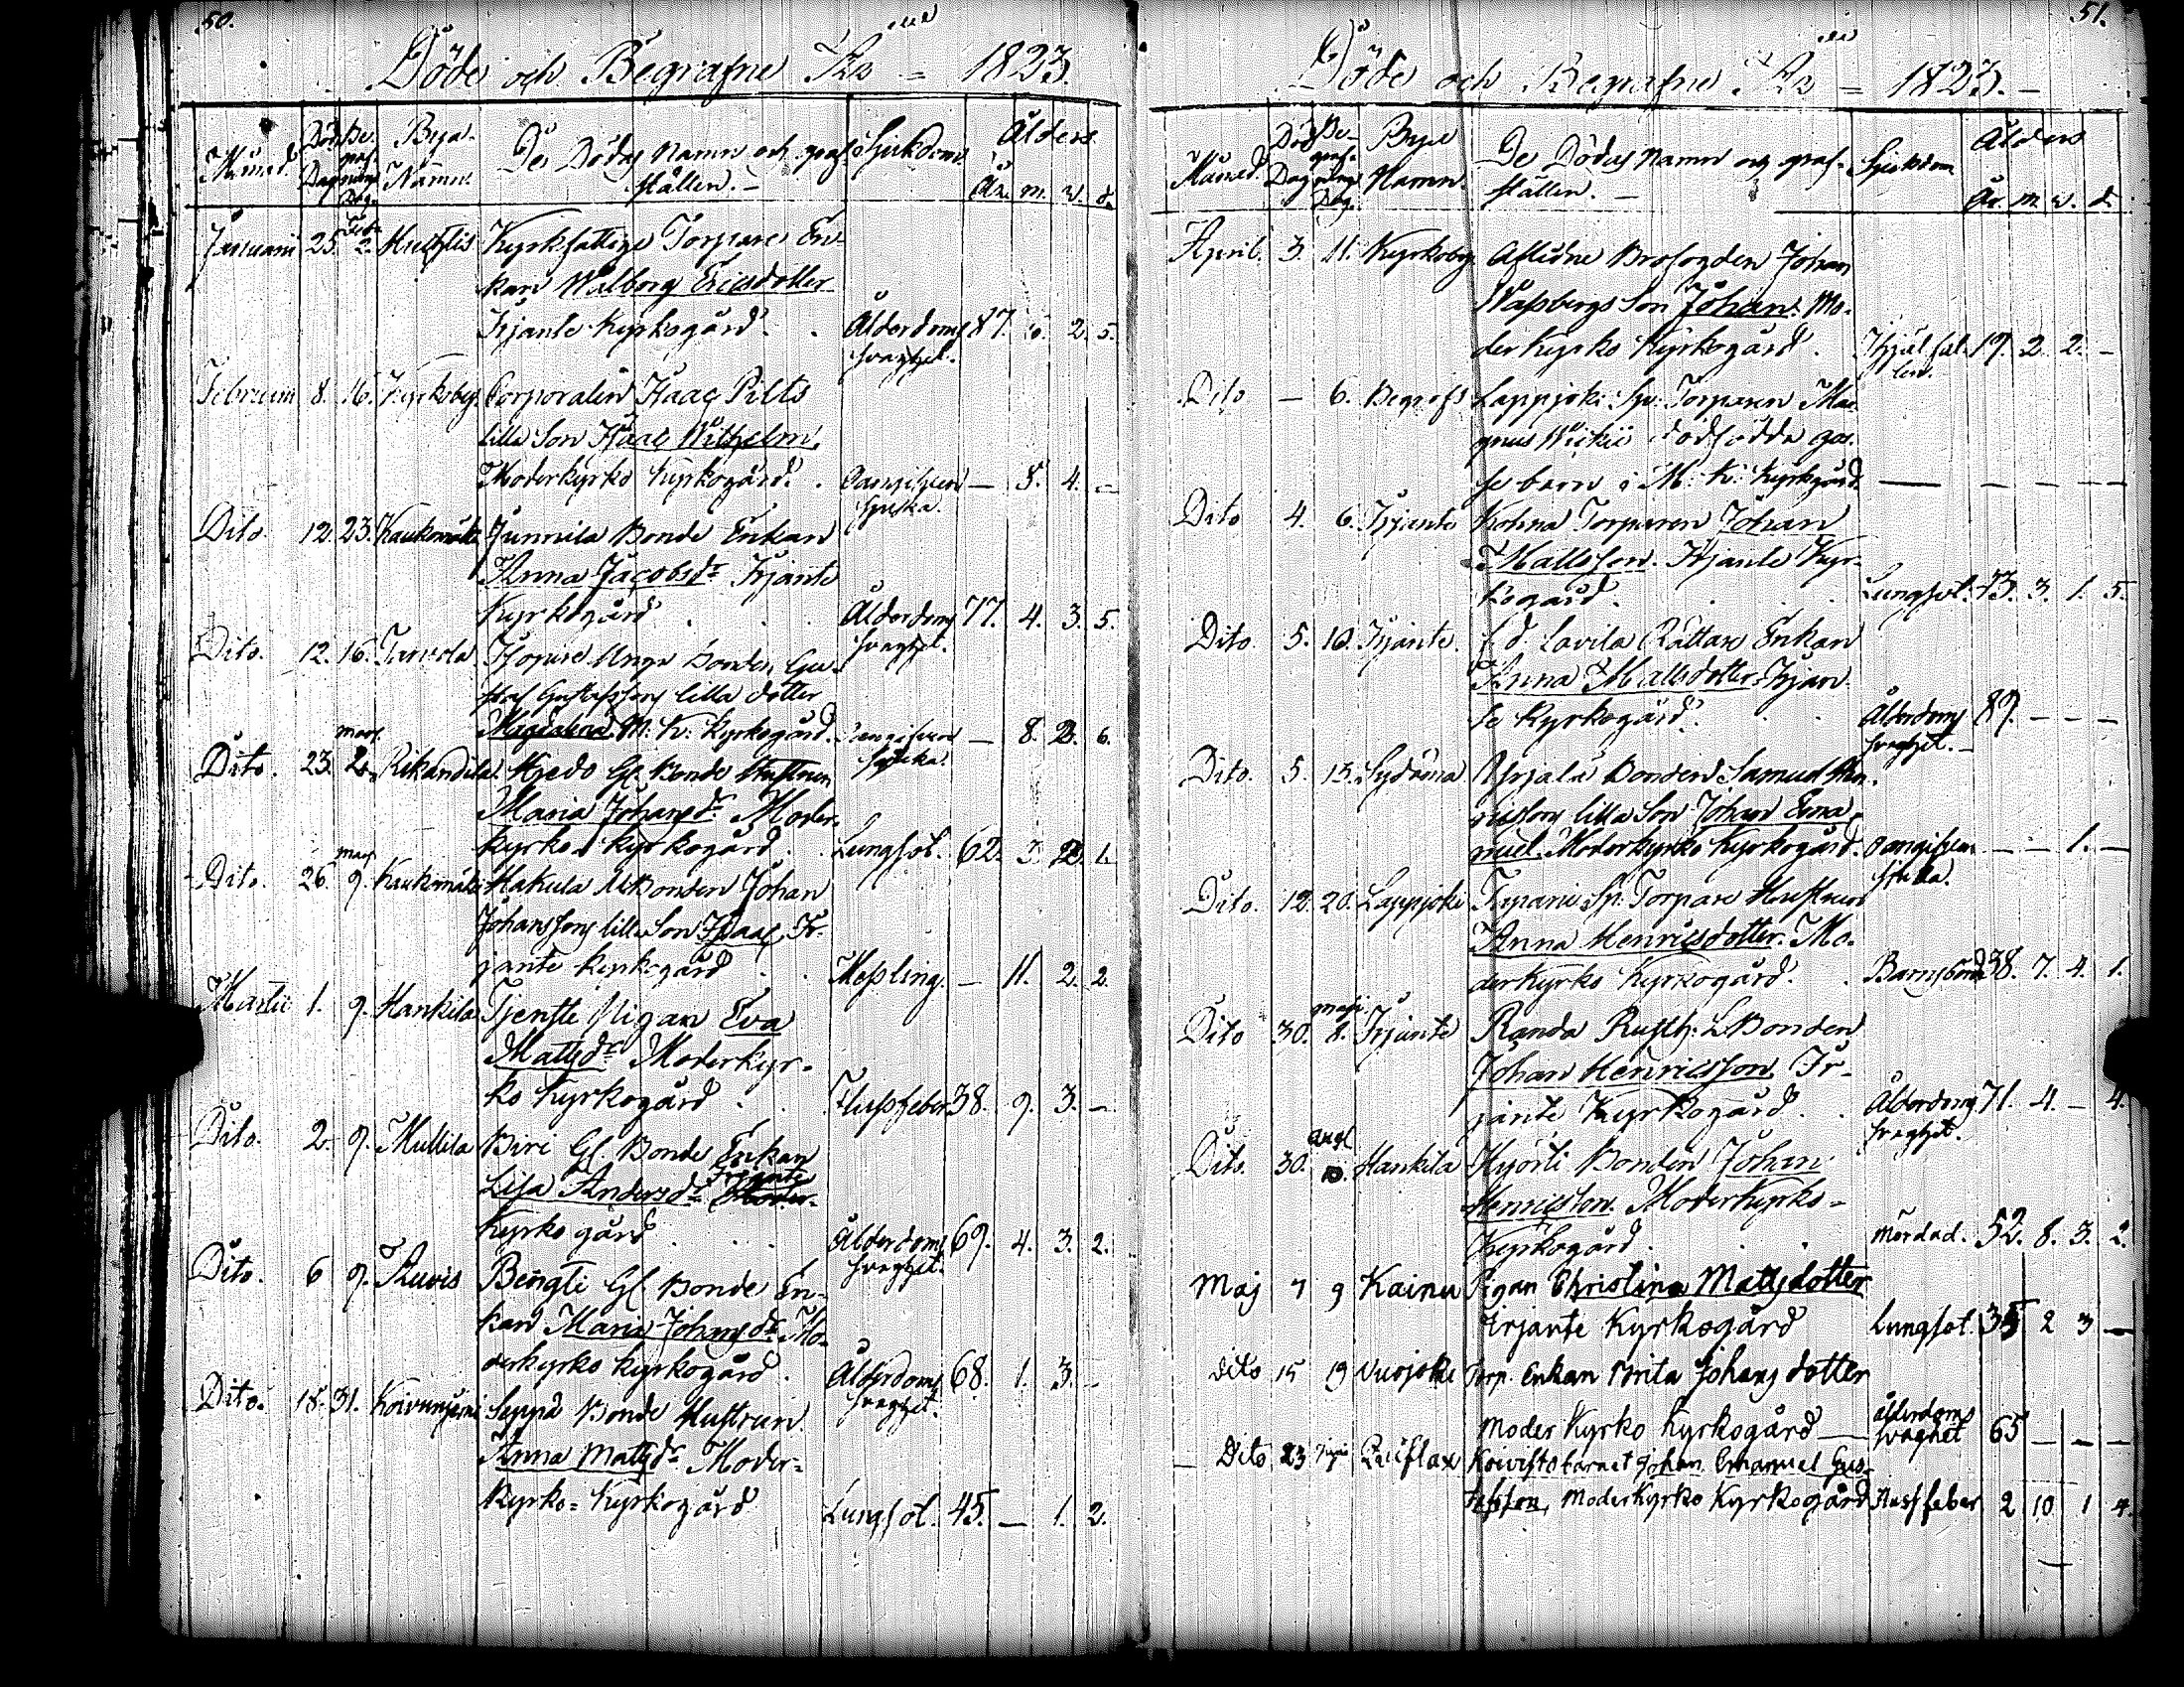 50.
Döde och Begrafne År 1823.
Månad. Död Dag Begrafnings Dag. Bya Namn. De Dödas Namn och grafställen. Sjukdom Ålders År. m. v. d.
Januarii 25. Feb. 2. Kyrkfattige Torpare En-
kan Walborg Ericsdotter
Irjante Kyrkogård. Ålderdoms 87. 6. 2. 5.
svaghet.
Februarii 8. 16. Kyrkoby. Corporalen Isaac Pilts
lilla Son Isaac Wilhelm.
Moderkyrko Kyrkogård. Oangifven — 8. 4. —
sjuka.
Dito. 12. 23. Kaukomäki Junnila Bonde Enkan
Anna Jacobsdr Irjante
Kyrkogård. Ålderdoms 77. 4. 3. 5.
svaghet.
Dito. 12. 16. Tarvola Unga Bonden Gu-
staf Gustafssons lilla dotter
Magdalena M: K: Kyrkogård. Oangifven — 8. 2. 6.
sjuka.
Dito. 23. Mart. 2. Rikandila Gl. Bonde Hustrun
Maria Johansdr Moder-
kyrko kyrkogård. Lungsot. 62. 3. 2. 1.
Dito. 26. Mart. 9. Kaukomäki Hakula Bonden Johan
Johanssons lilla Son Isaac, Ir-
jante kyrkogård Messling. — 11. 2. 2.
Martii 1. 9. Hankila Tjenste Pigan Eva
Mattsdr Moderkyr-
ko Kyrkogård. Flussfeber 38. 9. 3. —
Dito. 2. 9. Mullila Biri Gl. Bonde Enkan
Lisa Andersdr Irjante
Kyrkogård. Ålderdoms 69. 4. 3. 2.
svaghet.
Dito. 6 9. Auvis Bengti Gl. Bonde En-
kan Maria Johansdr Mo-
derkyrko kyrkogård. Ålderdoms 68. 1. 3. —
svaghet.
Dito. 18. 31. Koivuniemi Seppä Bonde Hustrun
Anna Mattsdr Moder-
Kyrko-Kyrkogård Lungsot. 45. — 1. 2.
51.
Döde och Begrafne År 1823.
Månad. Död Dag Begrafnings Dag. Bya Namn. De Dödas Namn och grafställen. Sjukdom Ålders År. m. v. d.
April. 3. 11. Kyrkoby Aflidne Brofogden Johan
Wassbergs Son Johan. Mo-
derkyrko Kyrkogård. 19. 2. 2. —
Dito — 6. Begrofs Lappjoki Torparen Ma-
gnus dödfödda gos-
se barn i M: K: Kyrkogård. — — — — —
Dito 4. 6. Irjante Kohna Torparen Johan
Mattsson. Irjante Kyr-
kogård. Lungsot. 3. 1. 5.
Dito 5. 10. Irjante. f. d. Lavila Rättare Enkan
Anna Mattsdotter Irjan-
te Kyrkogård. Ålderdoms 89. — — —
svaghet.
Dito. 5. 13. Sydänmaa Yrjälä Bonden Samuel
lilla Son Johan Ema-
nuel. Moderkyrko Kyrkogård. Oangifven — — 1. —
sjuka.
Dito. 12. 20. Lappjoki Torpare Hustrun
Anna Henricsdotter. Mo-
derkyrko Kyrkogård. Barnsbörd 38. 7. 4. 1.
Dito 30. Maji 8. Irjante Randa Rusth: Bonden
Johan Henricsson Ir-
jante Kyrkogård. Ålderdoms 71. 4. — 4.
svaghet.
Dito. 30. Aug. 10. Hankila Bonden Johan
Henricsson. Moderkyrko-
Kyrkogård. mördad. 52. 8. 3. 2.
Maj 7 9 Kainu Pigan Christina Mattsdotter
Irjante Kyrkogård Lungsot. 35 2 3 —
Dito 15 19 Vuojoki Torp. Enkan Brita Johans dotter
Moder Kyrko Kyrkogård — ålderdoms 65 — — —
svaghet
Dito 23 Junii 1 Koivisto barnet Johan Emanuel Gus-
tafsson, Moderkyrko Kyrkogård Nerffeber 2 10 1 4.